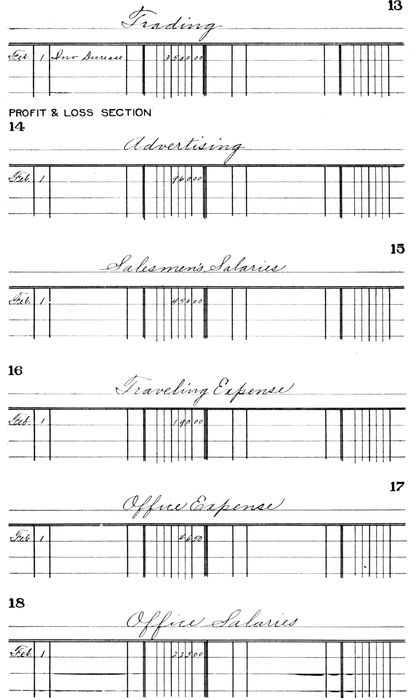 13
Trading
Feb 1 Inv Decrease 3500.00
PROFIT & LOSS SECTION
14
Advertising
Feb. 1 960.00
15
Salesmen's Salaries
Feb. 1 450.00
16
Traveling Expense
Feb. 1 190.00
17
Office Expense
Feb 1
18
Office Salaries
Feb 1 225.00